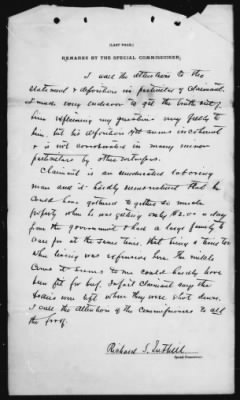 (LAST PAGE.)
REMARKS BY THE SPECIAL COMMISSIONER.
I call the attention to the
statement & deposition in particular of Claimant.
I made every endeavor to get the truth out of
him explaining my questions very fully to
him, but his deposition still seems incoherent
& is not corroborated in many minor
particulars by other witnesses.
Claimant is an uneducated laboring
man and it's hardly understood that he
could have gathered together so much
property when he was getting only $12.00 a day
from the government & had a large family to
care for at the same time, that being a time too
when living was expensive here. The mittels
Cows it seems to me could hardly have
been fit for beef. In fact claimant says the
bodies were left where they were shot down.
I call the attention of the Commissioners to all
the proof.
Richard S. Tuthill
Special Commissioner.